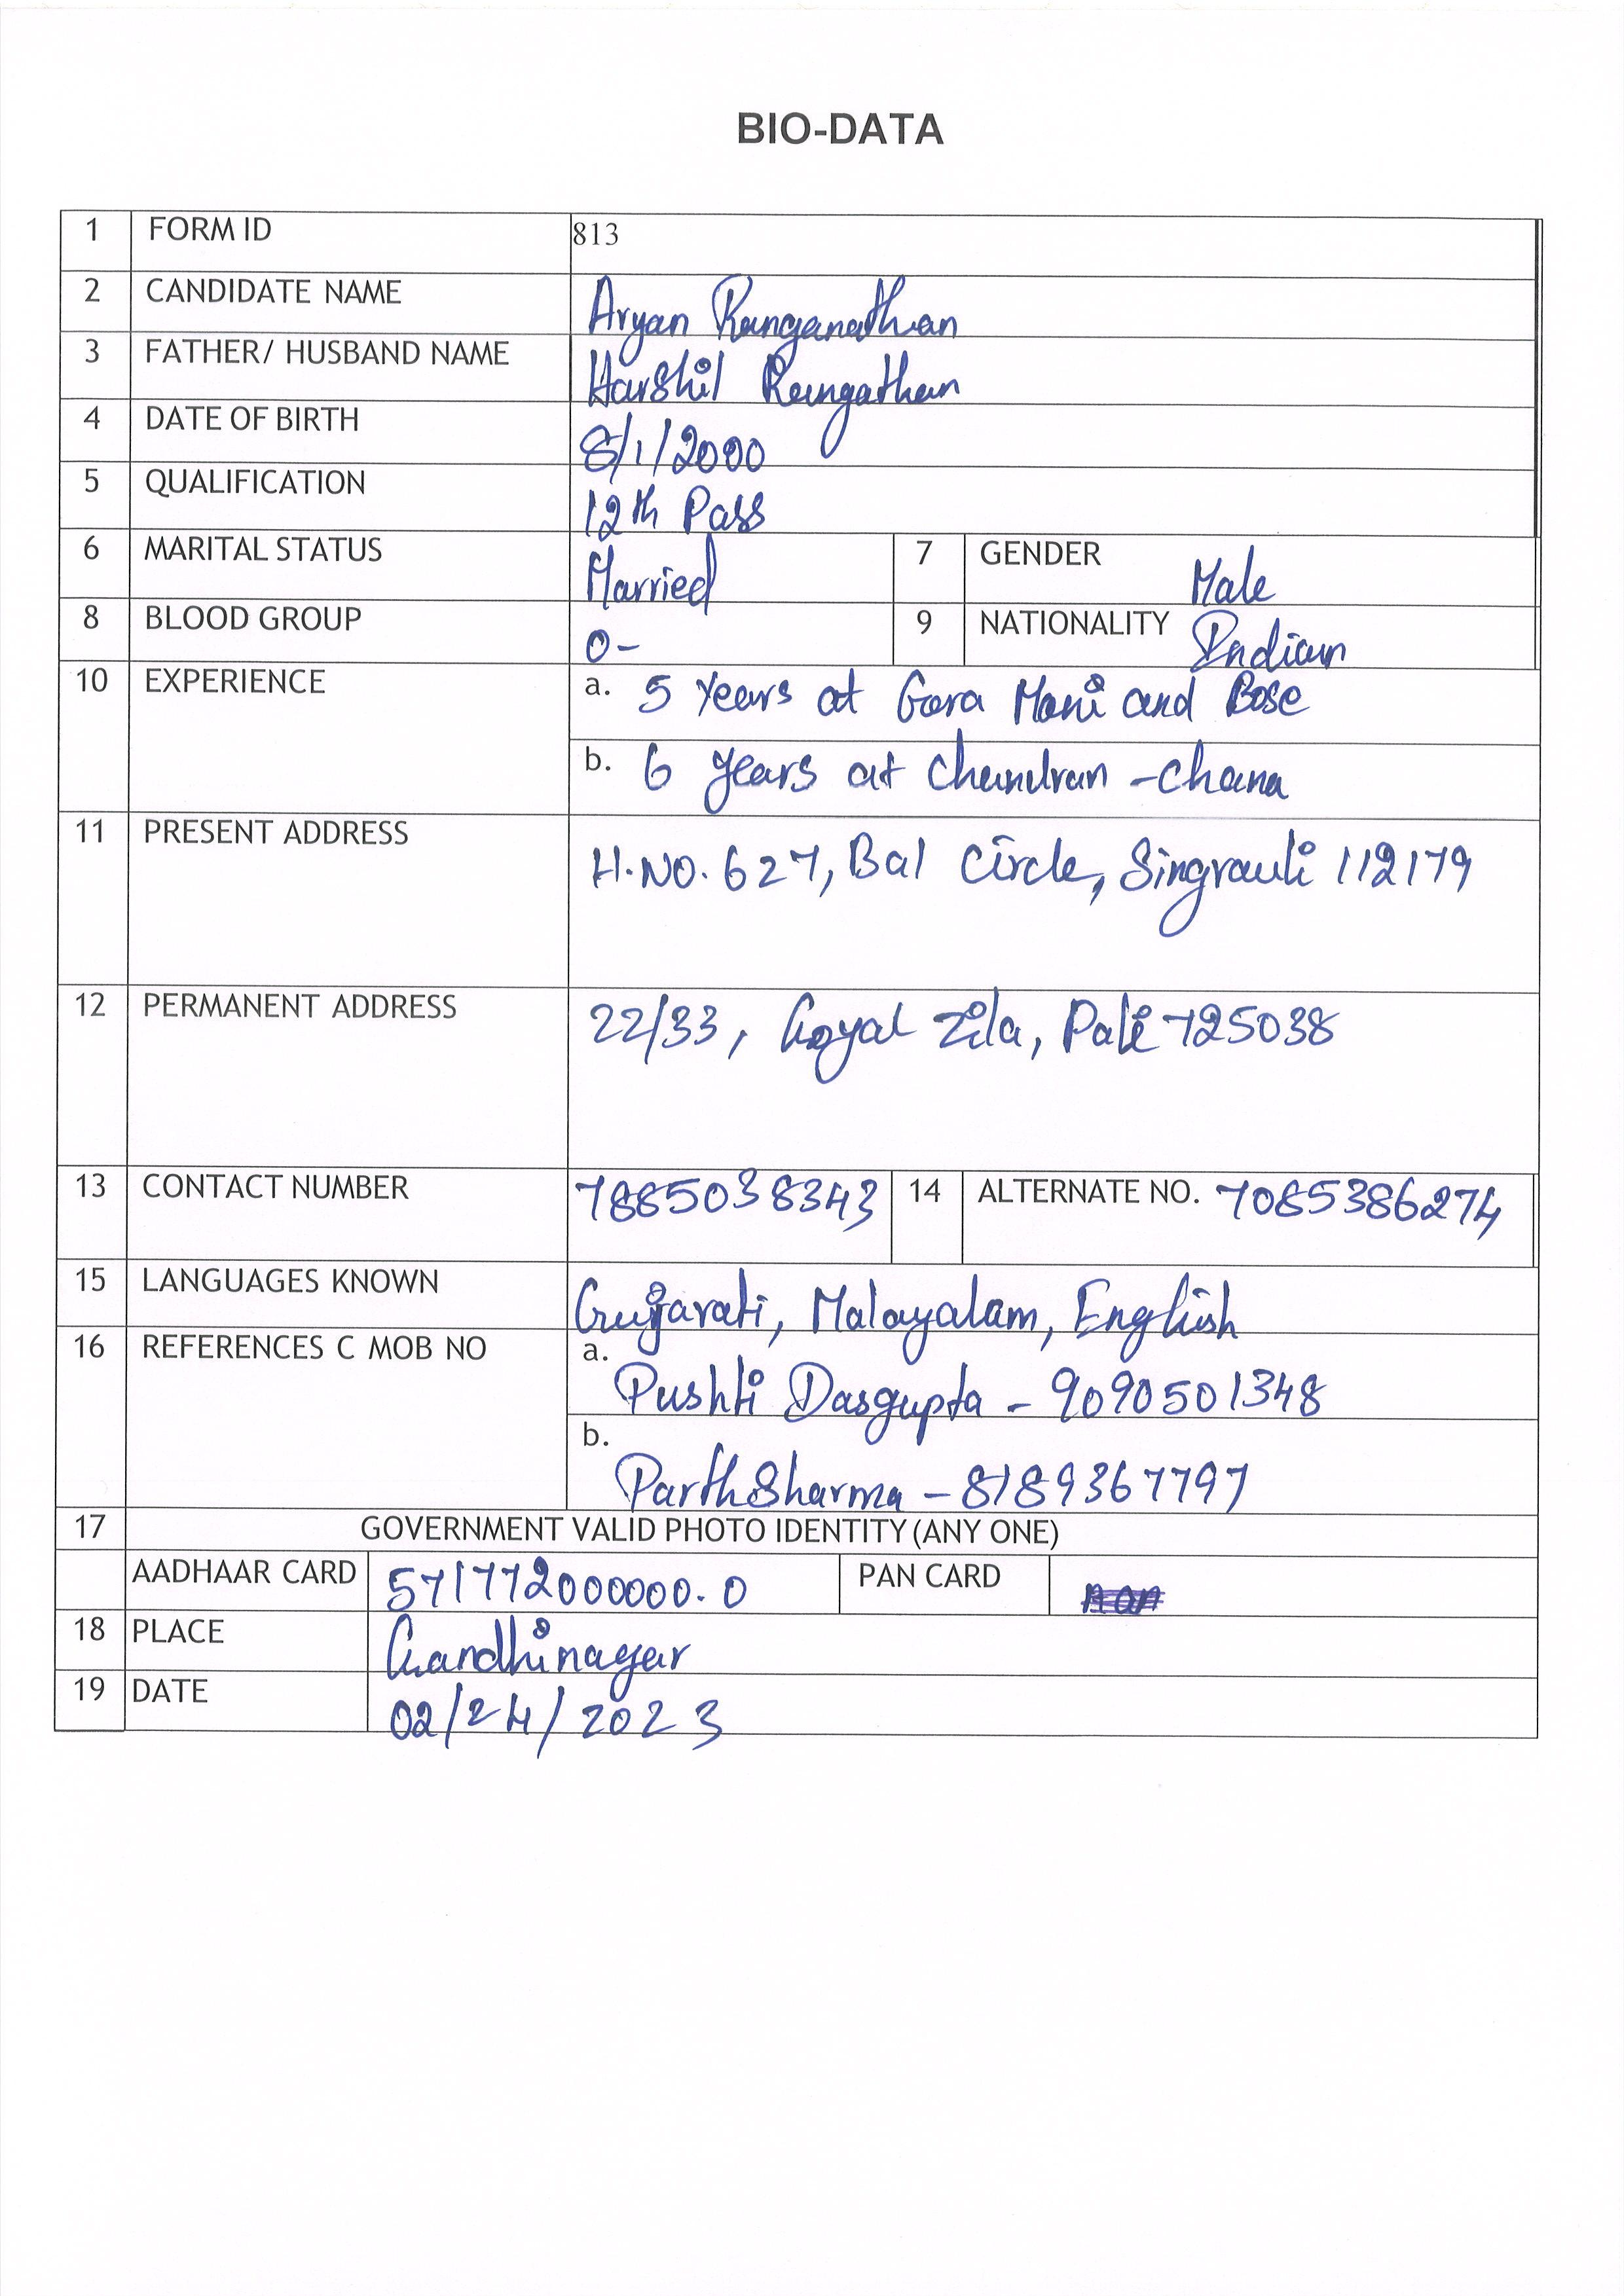 BIO-DATA
1 FORM ID 813
2 CANDIDATE NAME Aryan Ranganathan
3 FATHER/ HUSBAND NAME Harshil Rangathan
4 DATE OF BIRTH 8/1/2000
5 QUALIFICATION 12th Pass
6 MARITAL STATUS Married 7 GENDER Male
8 BLOOD GROUP O- 9 NATIONALITY Indian
10 EXPERIENCE a. 5 Years at Gara Mani and Bose
b. 6 years at Chandran -Chana
11 PRESENT ADDRESS H.NO. 627, Bal Circle, Singrauli 112179
12 PERMANENT ADDRESS 22/33, Goyal Zila, Pali 725038
13 CONTACT NUMBER 7885038343 14 ALTERNATE NO. 7085386274
15 LANGUAGES KNOWN Gujarati, Malayalam, English
16 REFERENCES C MOB NO a.
Pushti Dasgupta - 9090501348
b.
Parth Sharma - 8189367797
17 GOVERNMENT VALID PHOTO IDENTITY (ANY ONE)
AADHAAR CARD 571772000000.0 PAN CARD
18 PLACE Gandhinagar
19 DATE 02/24/2023